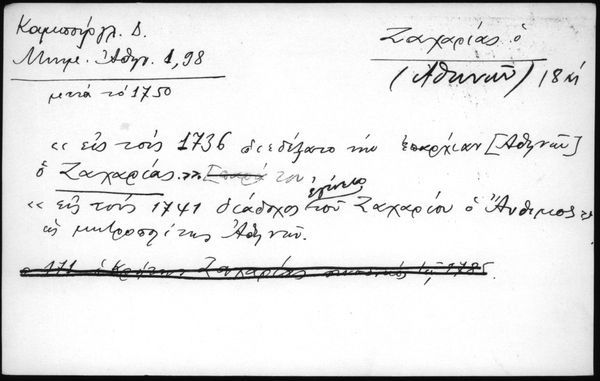 Καμπούρογλ. Δ.
Μνημ. Ἀθην. 1, 98
μετὰ τὸ 1750
Ζαχαρίας ὁ
(Ἀθηνῶν) 18 αἰ
«εἰς τοὺς 1736 διεδέξατο τὴν ἐπαρχίαν [Ἀθηνῶν]
ὁ Ζαχαρίας»
«εἰς τοὺς 1741 διάδοχος ἐγένετο τοῦ Ζαχαρίου ὁ Ἄνθιμος
ὡς μητροπολίτης Ἀθηνῶν.
Κρήτης Ζαχαρίας